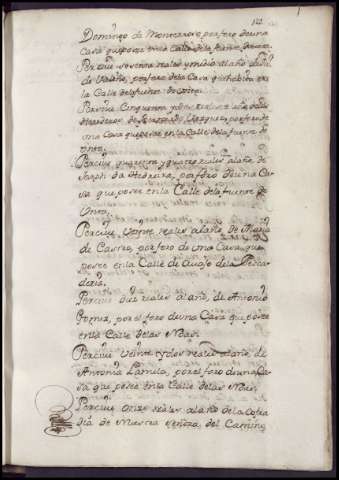 122
Domingo de Montenegro, por foro de una
Casa que posee en la Calle de la fuente de unta.
Percive setenta reales y medio al año de
de Valiño, por foro de la Casa que havita en
la Calle de la fuente de Unta.
Percive Cinquenta y dos reales al año de los
Herederos de Vazquez, por foro de
una Casa que posee en la Calle de la fuente de
Unta.
Percive quarenta y quatro reales al año de
Joseph da Pedreira, por foro de una Ca-
sa que posee en la Calle de la fuente de
Unta.
Percive Veinte reales al año de Maria
de Castro, por foro de una Casa que
posee en la Calle de de la Pesca-
deria.
Percive Diez reales al año, de Antonio
Gomez, por el foro de una Casa que posee
en la Calle de las Nobas.
Percive Veinte y dos reales al año, de
Antonia Lamela, por el foro de una Ca-
sa que posee en la Calle de las Nobas.
Percive Onze reales al año de la Cofra-
dia de Nuestra Señora del Camino,